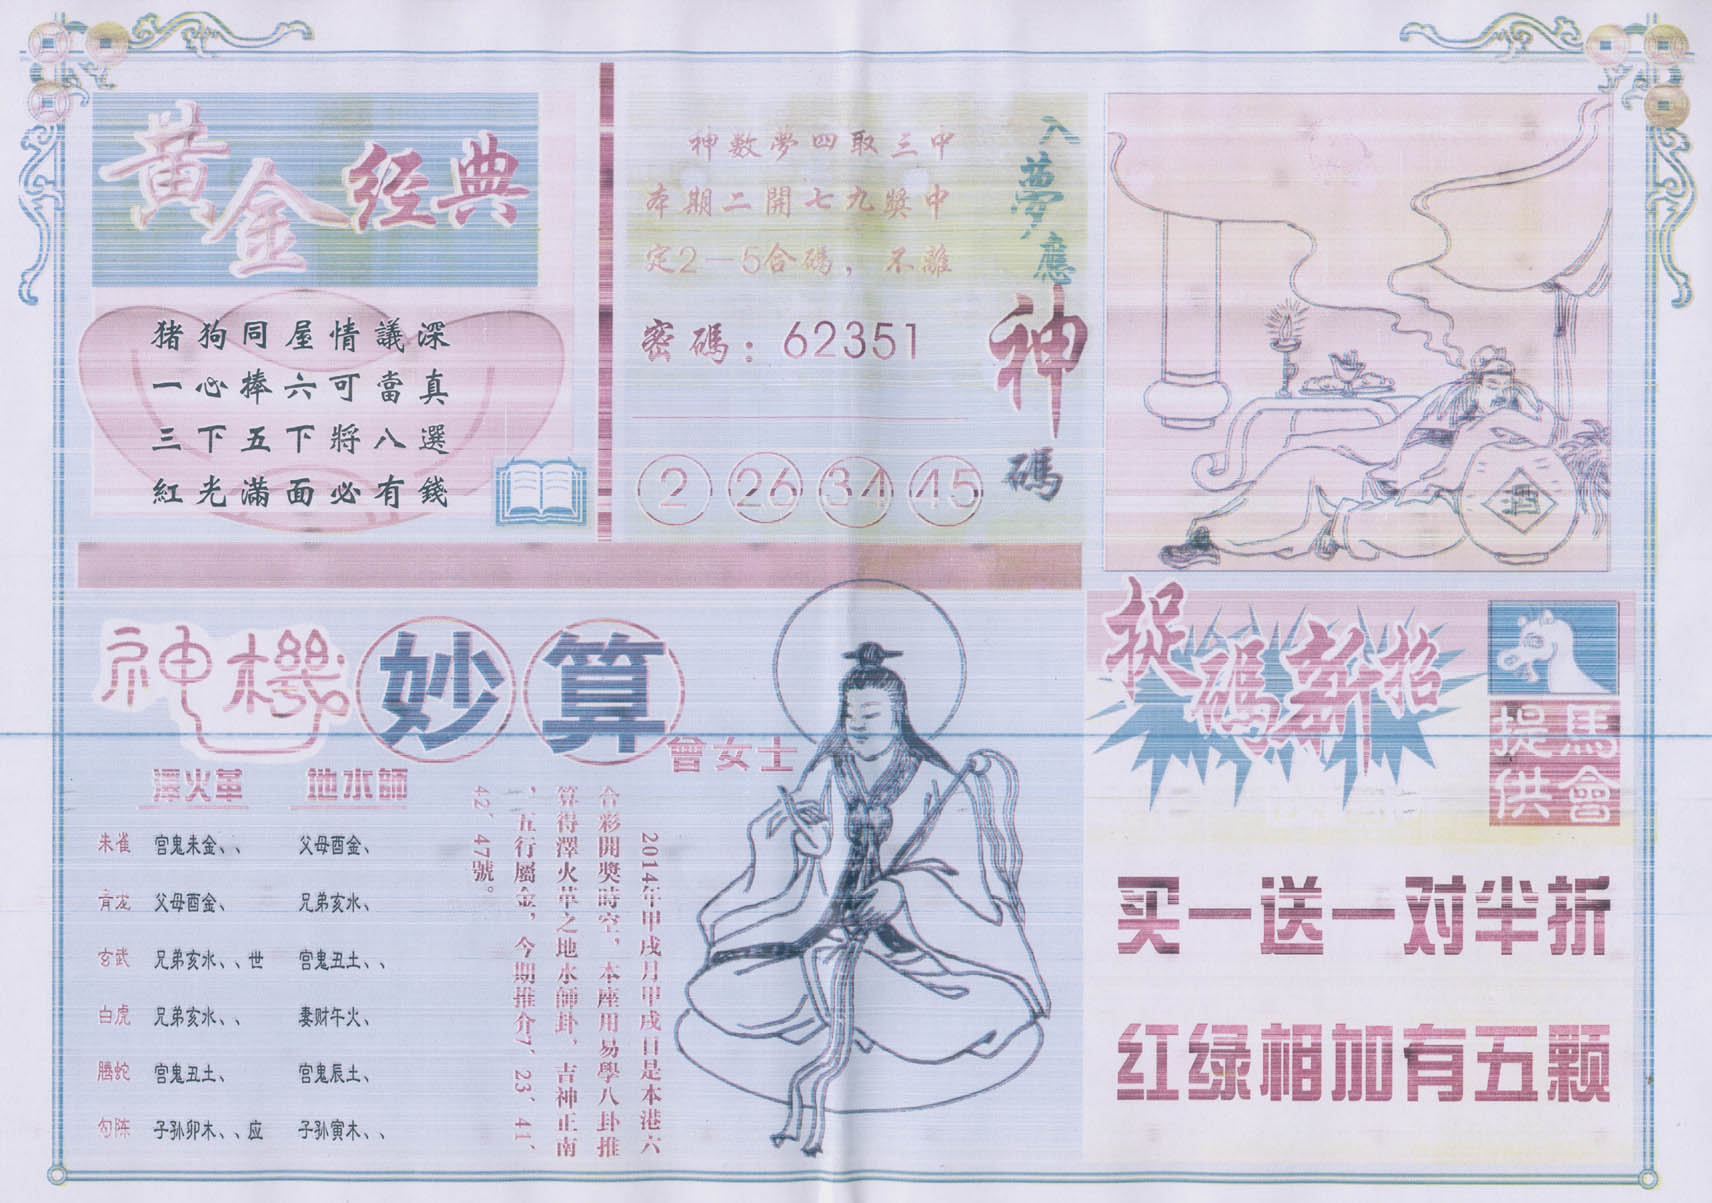 黃金经典
猪狗同屋情議深
一心捧六可當真
三下五下將八選
紅光滿面必有錢
神數夢四取三中
本期二開七九獎中
定2－5合碼，不離
密碼：62351
2 26 34 45
入夢應神碼
酒
神機妙算
曾女士
澤火革 地水師
朱雀 宫鬼未金、、 父母酉金、
青龙 父母酉金、 兄弟亥水、
玄武 兄弟亥水、、世 宫鬼丑土、、
白虎 兄弟亥水、、 妻财午火、
腾蛇 宫鬼丑土、 宫鬼辰土、
勾陈 子孙卯木、、应 子孙寅木、、
2014年甲戌月甲戌日是本港六
合彩開獎時空，本座用易學八卦推
算得澤火革之地水師卦，吉神正南
，五行屬金，今期推介7、23、41、
42、47號。
捉碼新招
馬會提供
买一送一对半折
红绿相加有五颗